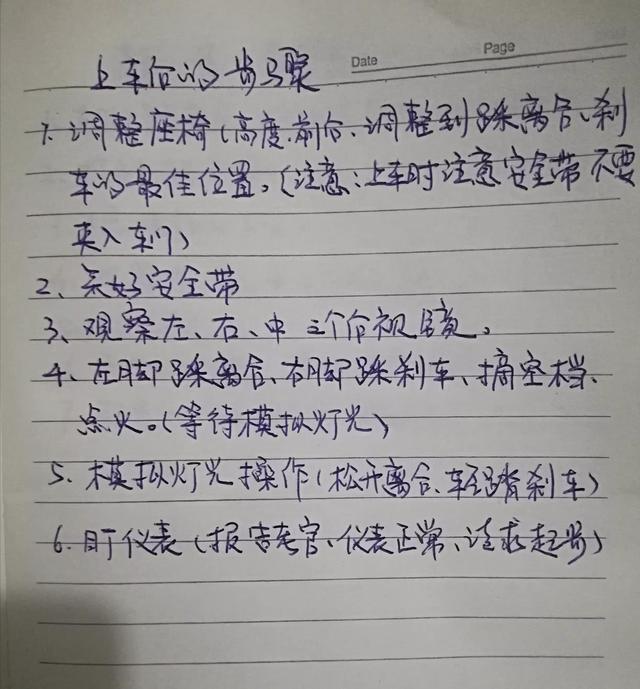 上车后的步骤
Date
Page
1. 调整座椅(高度、前后、调整到踩离合、刹
车的最佳位置。(注意:上车时注意安全带不要
夹入车门)
2、系好安全带
3、观察左、右、中 三个后视镜。
4、左脚踩离合、右脚踩刹车、摘空档、
点火。(等待模拟灯光)
5、模拟灯光操作(松开离合、轻踏刹车)
6. 盯仪表(报告考官、仪表正常、请求起步)